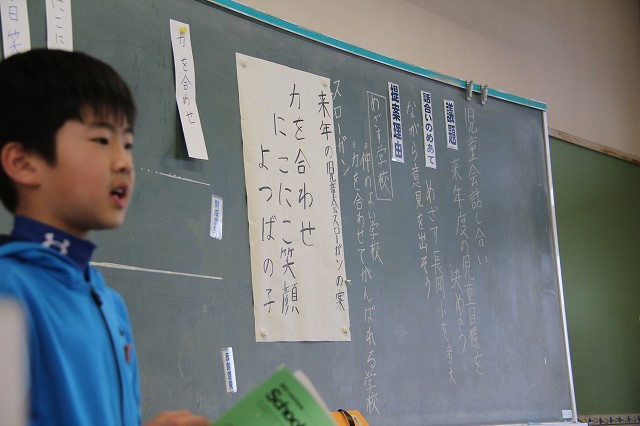 議題
児童会話し合い
来年度の児童目標を
決めよう
話合いのめあて
めざす長岡小を考え
ながら意見を出そう
提案理由
めざす学校
仲のよい学校
力を合わせてがんばれる学校
スローガン
来年の児童会スローガンの案
力を合わせ
にこにこ笑顔
よつばの子
力を合わせ
にこに
日笑
School